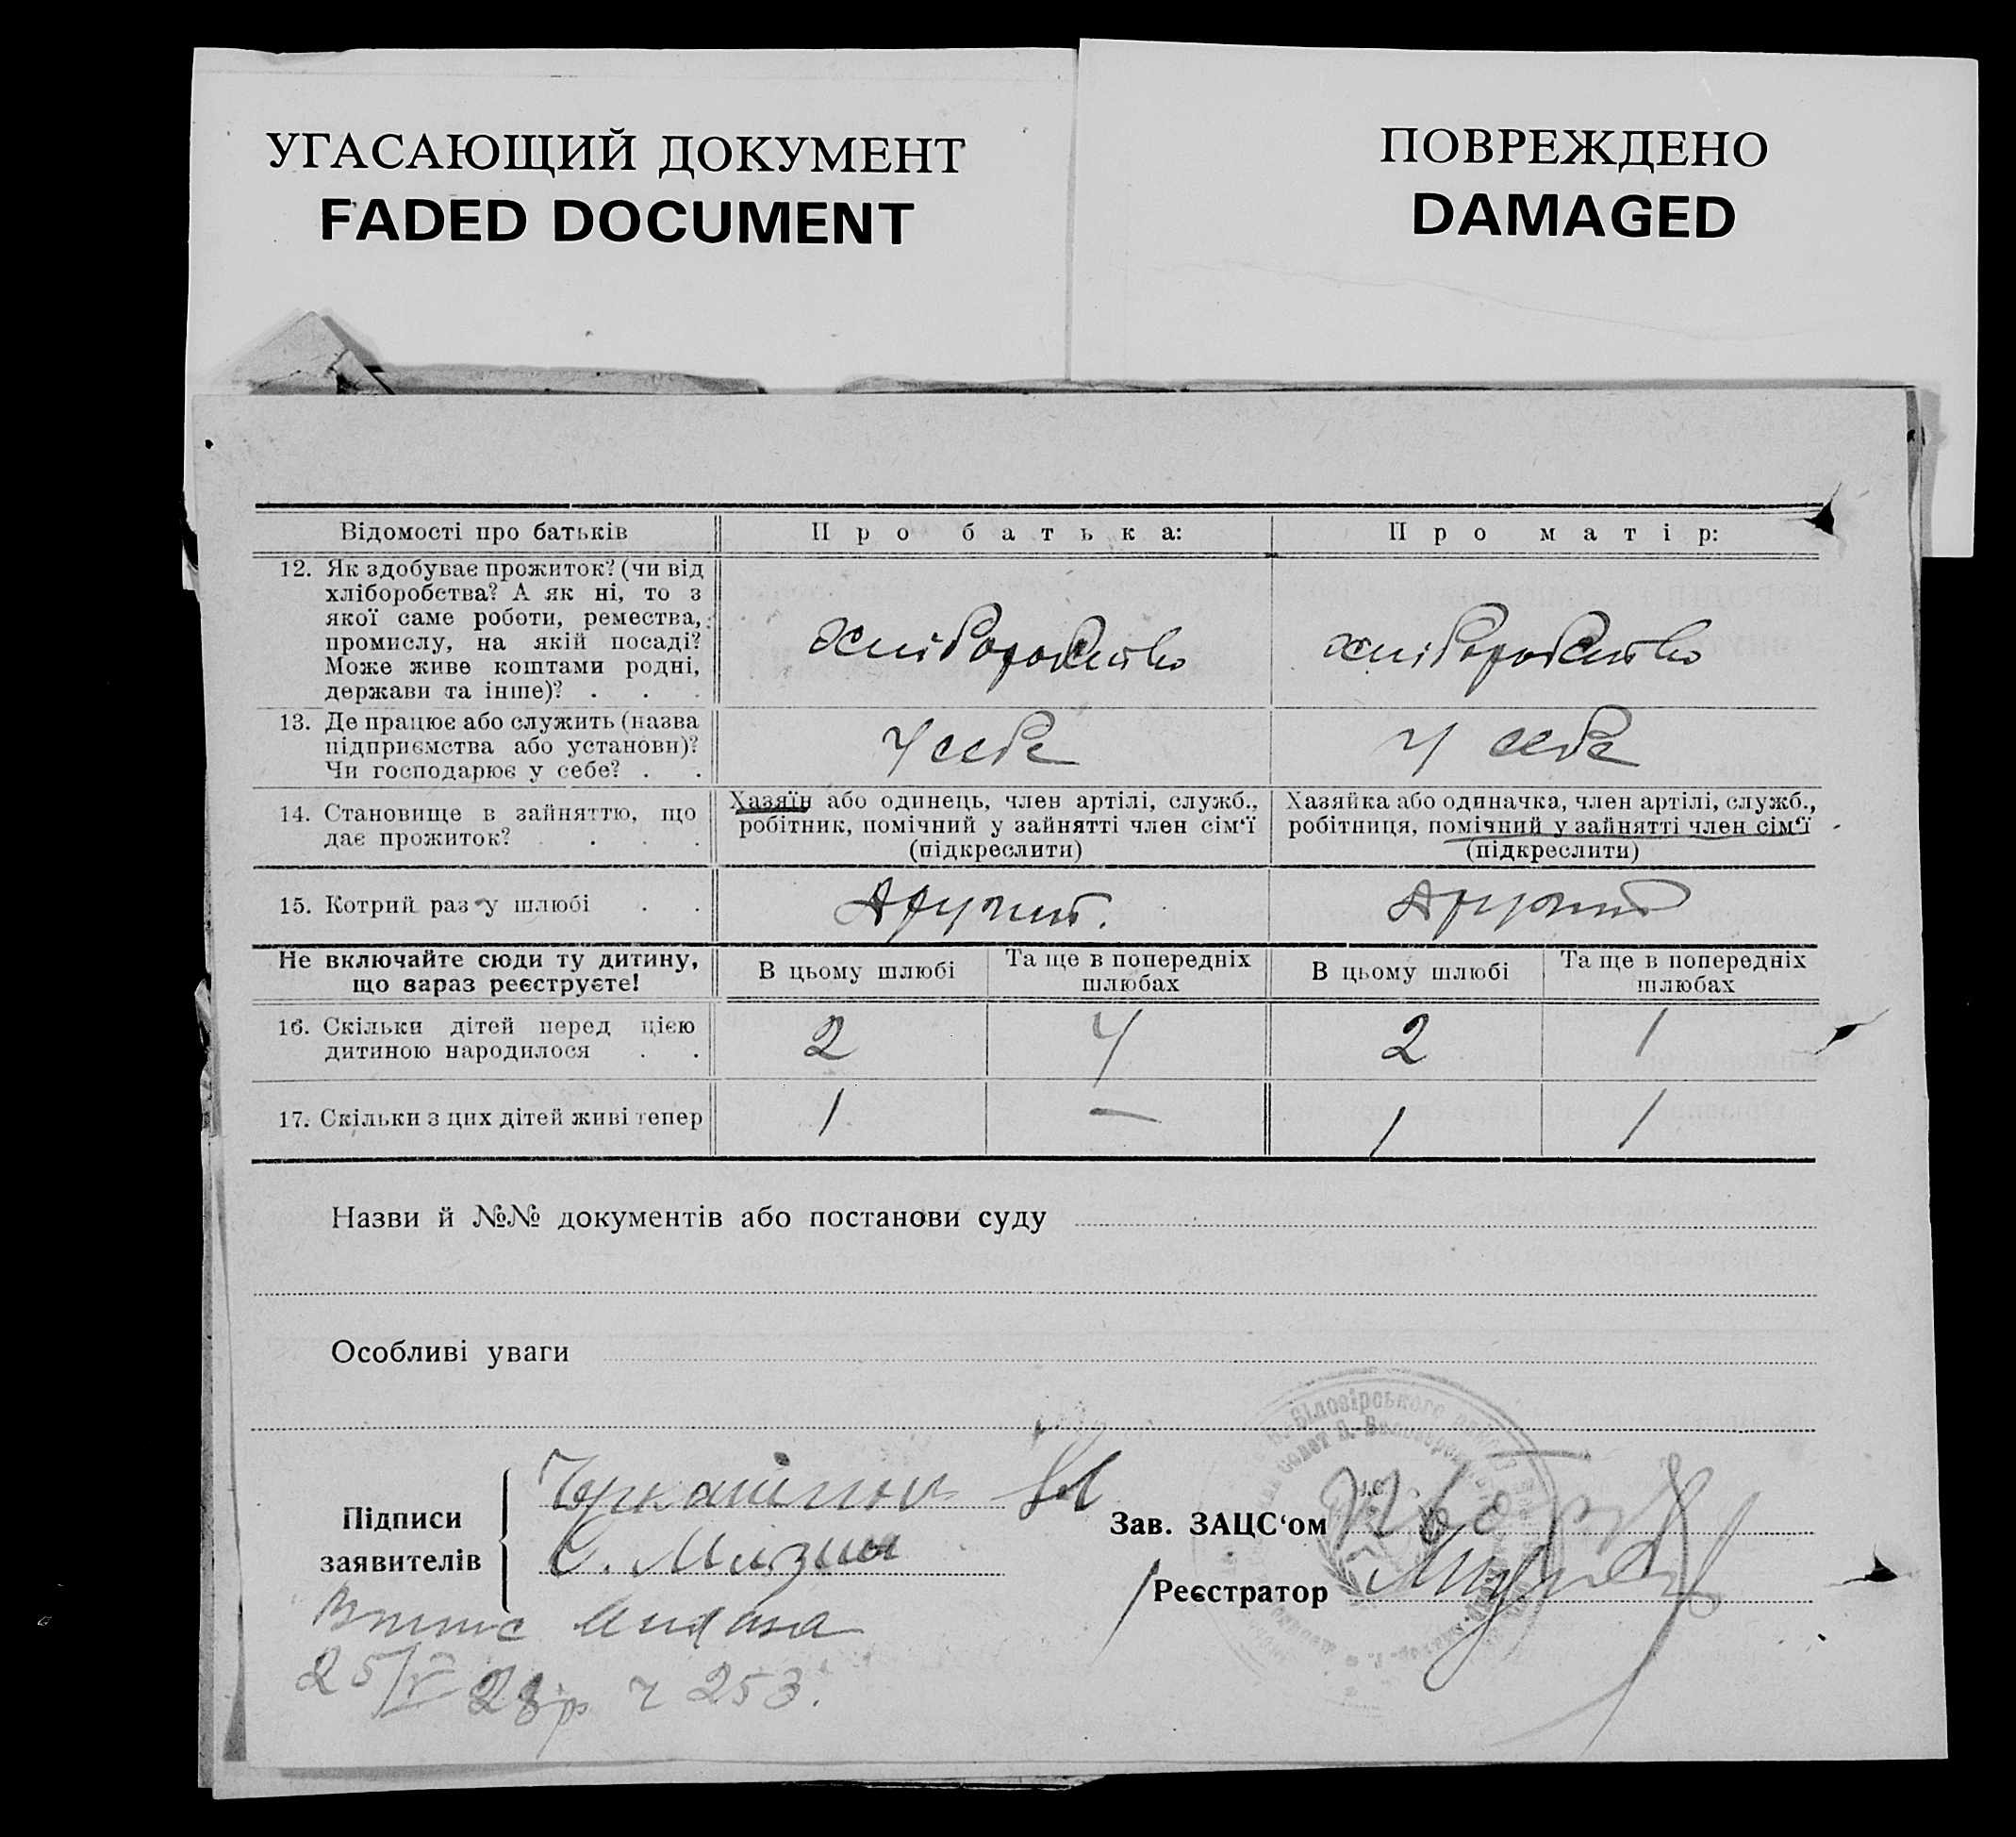 УГАСАЮЩИЙ ДОКУМЕНТ
FADED DOCUMENT
ПОВРЕЖДЕНО
DAMAGED
Відомості про батьків
Про батька:
Про матір:
12. Як здобуває прожиток? (чи від
хліборобства? А як ні, то з
якої саме роботи, ремества,
промислу, на якій посаді?
Може живе коштами родні,
держави та інше)? . . .
хліборобство
хліборобство
13. Де працює або служить (назва
підприємства або установи)?
Чи господарює у себе? . .
у себе
у себе
14. Становище в зайняттю, що
дає прожиток? . . . .
Хазяїн або одинець, член артілі, служб.,
робітник, помічний у зайнятті член сім‘ї
(підкреслити)
Хазяйка або одиначка, член артілі, служб.,
робітниця, помічний у зайнятті член сім‘ї
(підкреслити)
15. Котрий раз у шлюбі . .
Другий.
Другий
Не включайте сюди ту дитину,
що зараз реєструєте!
В цьому шлюбі
Та ще в попередніх
шлюбах
В цьому шлюбі
Та ще в попередніх
шлюбах
16. Скільки дітей перед цією
дитиною народилося . .
2
4
2
1
17. Скільки з цих дітей живі тепер
1
—
1
1
Назви й №№ документів або постанови суду
Особливі уваги
Підписи
заявителів
Зав. ЗАЦС‘ом
Реєстратор
Білозірського
25/V 28р ч 253.